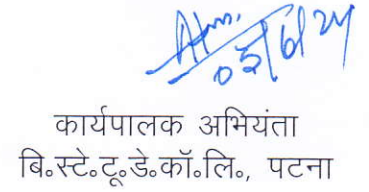 05/6/24
कार्यपालक अभियंता
बि०स्टे०टू०डे०कॉ०लि०, पटना